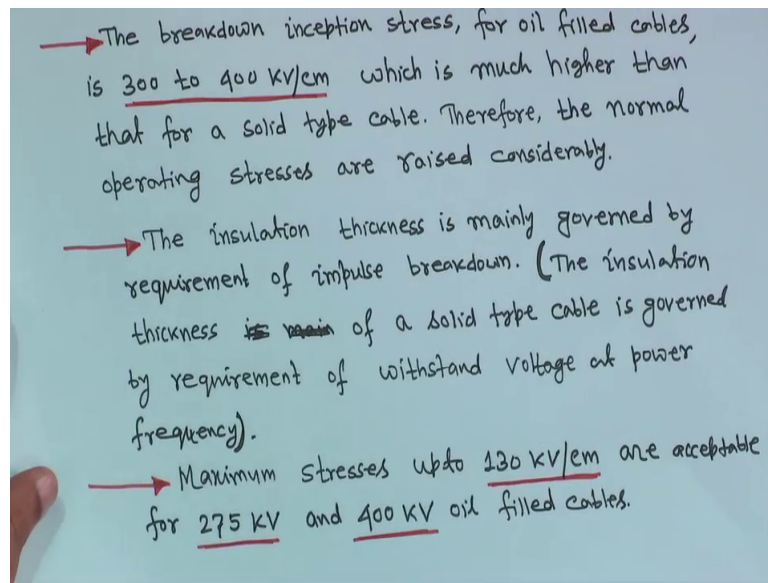 The breakdown inception stress, for oil filled cables,
is 300 to 400 KV/cm which is much higher than
that for a solid type cable. Therefore, the normal
operating stresses are raised considerably.
The insulation thickness is mainly governed by
requirement of impulse breakdown. (The insulation
thickness of a solid type cable is governed
by requirement of withstand voltage at power
frequency).
Maximum stresses upto 130 KV/cm are acceptable
for 275 KV and 400 KV oil filled cables.